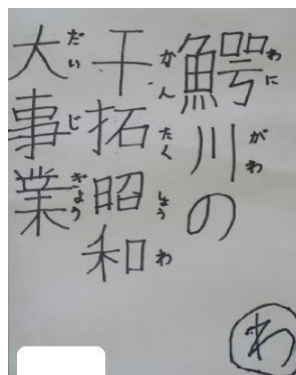 鰐川の
わに がわ
干拓昭和
かん たく しょう わ
大事業
だい じ ぎょう
わ